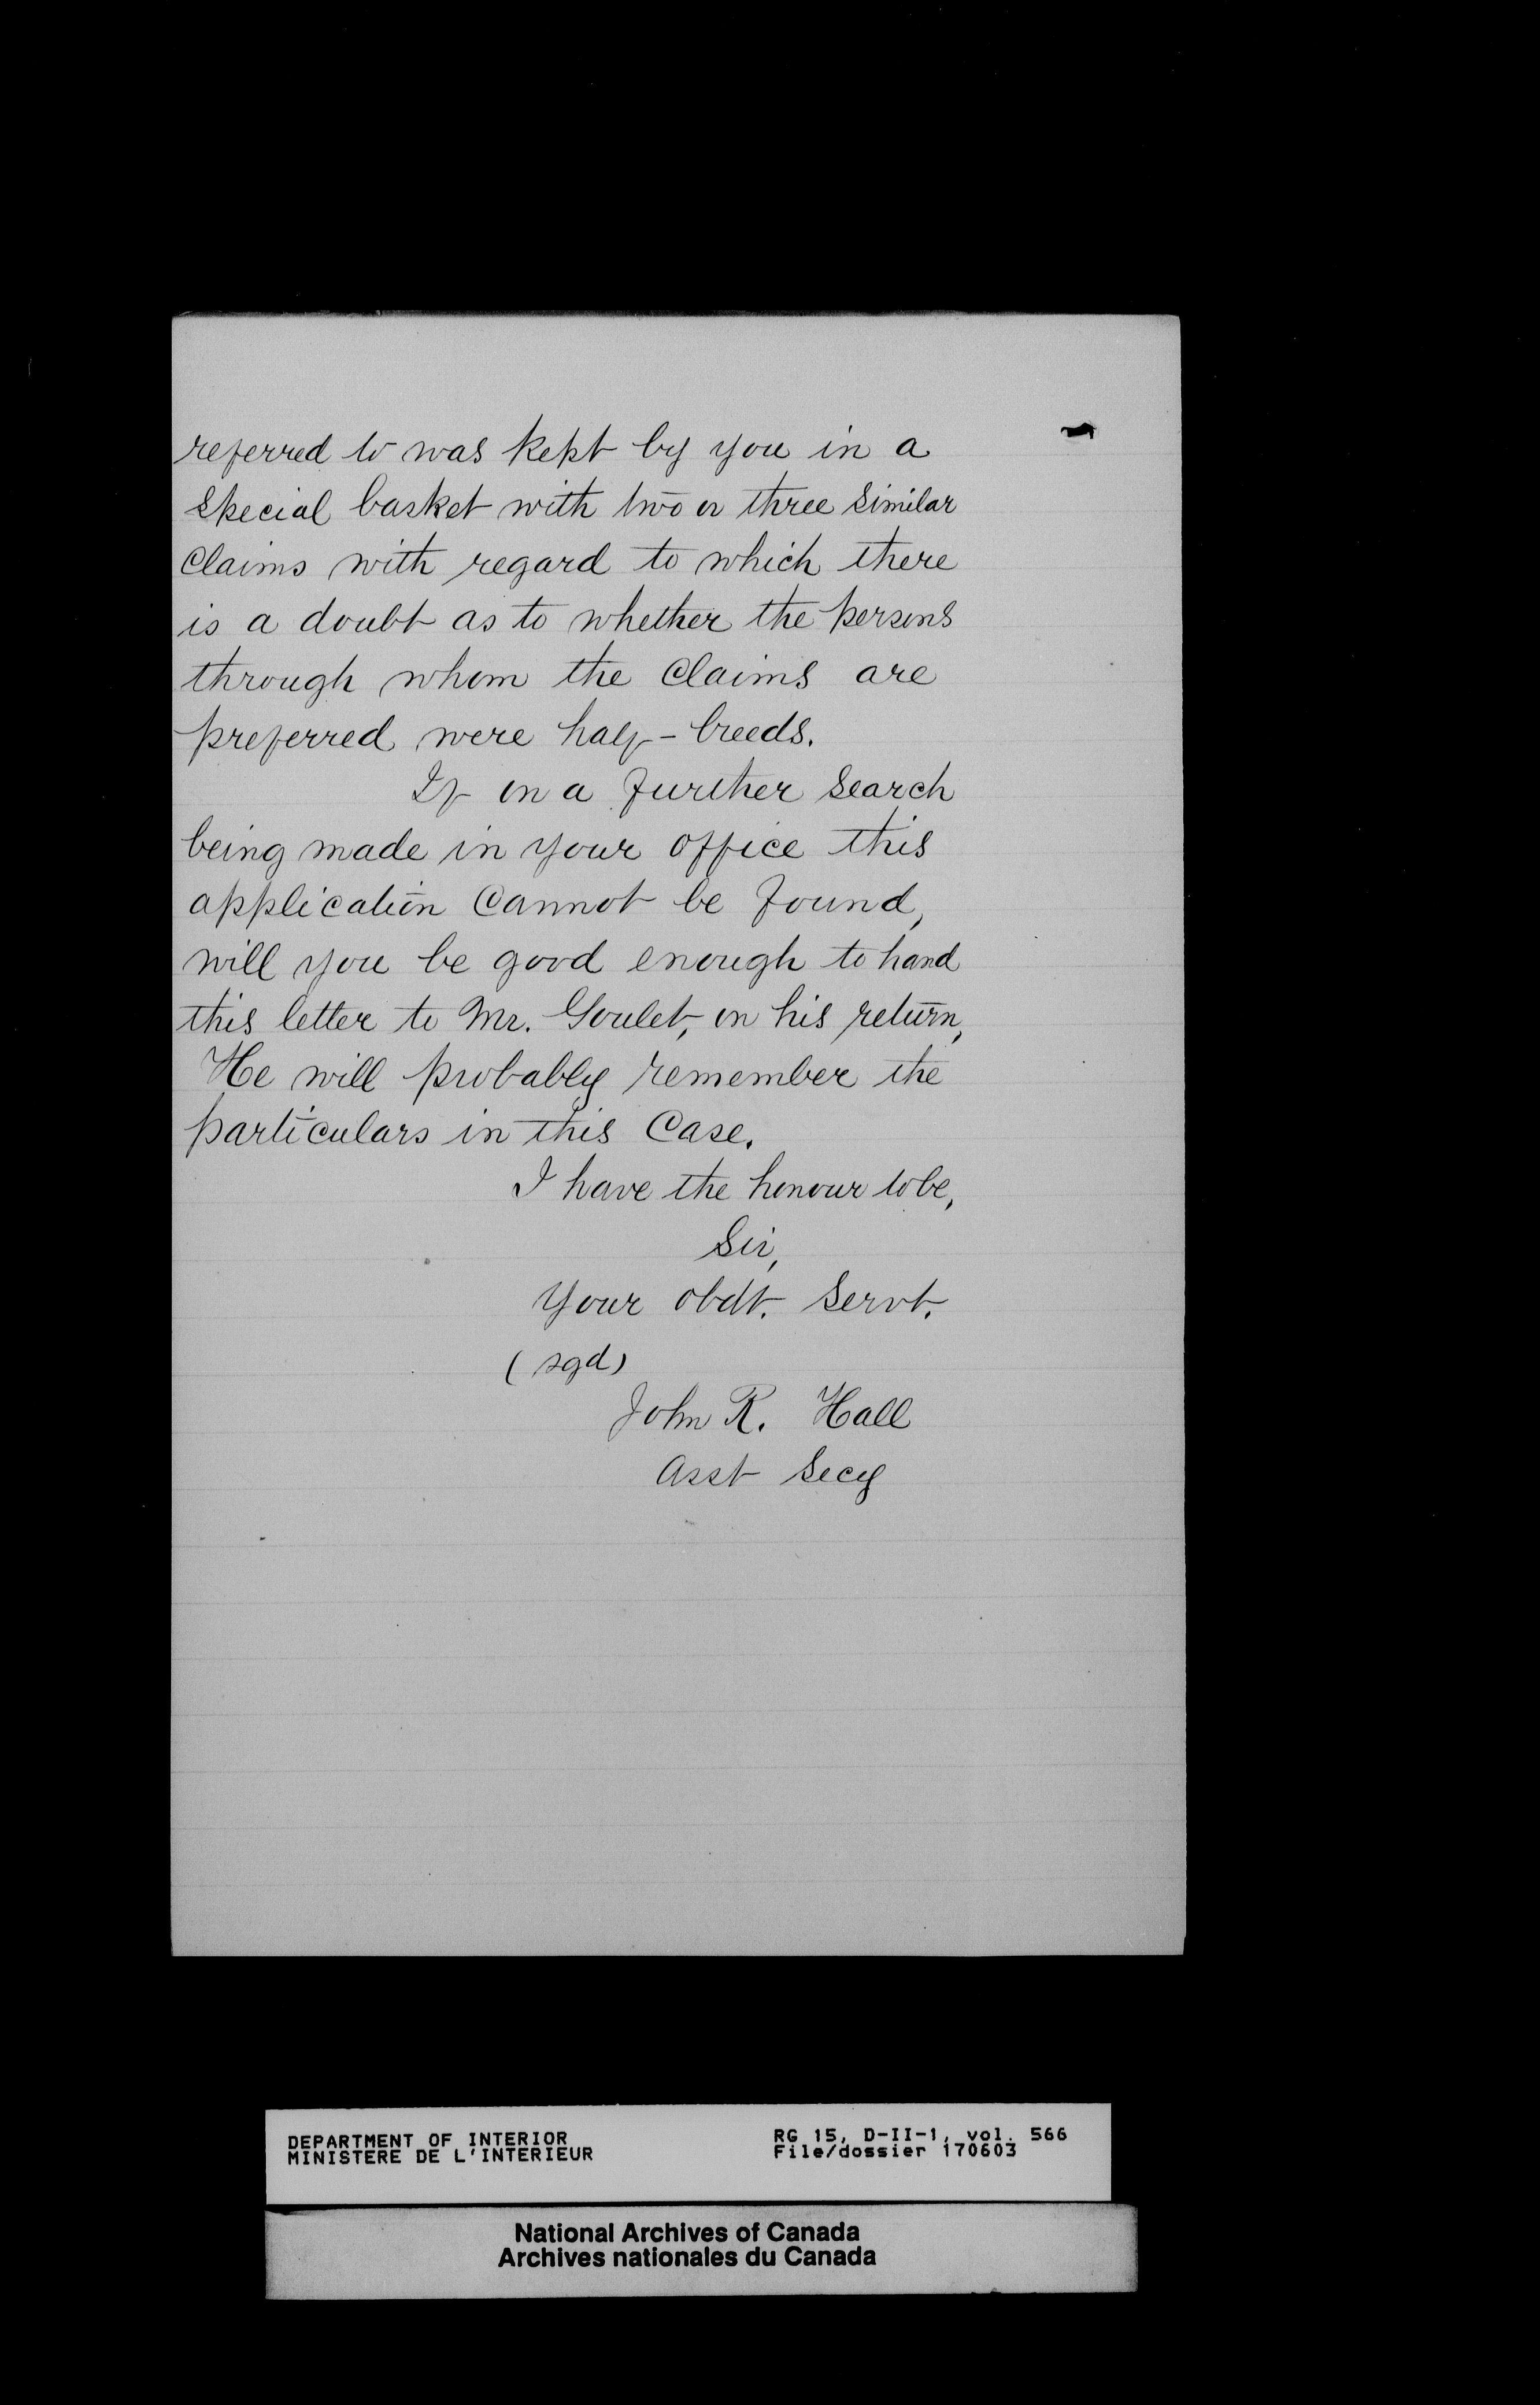 referred to was kept by you in a
special basket with two or three similar
Claims with regard to which there
is a doubt as to whether the persons
through whom the Claims are
preferred were half-breeds.
If on a further search
being made in your office this
application Cannot be found,
will you be good enough to hand
this letter to Mr. Goulet, on his return,
He will probably remember the
particulars in this Case.
I have the honour to be,
Sir,
Your obdt. Servt.
(sgd)
John R. Hall
Asst Secy
DEPARTMENT OF INTERIOR
MINISTERE DE L'INTERIEUR
RG 15, D-II-1, vol. 566
File/dossier 170603
National Archives of Canada
Archives nationales du Canada